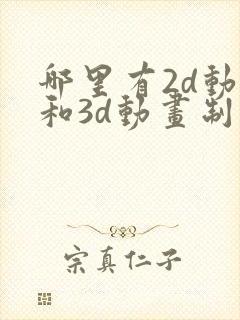 哪里有2d動
和3d動畫制
宗真仁子